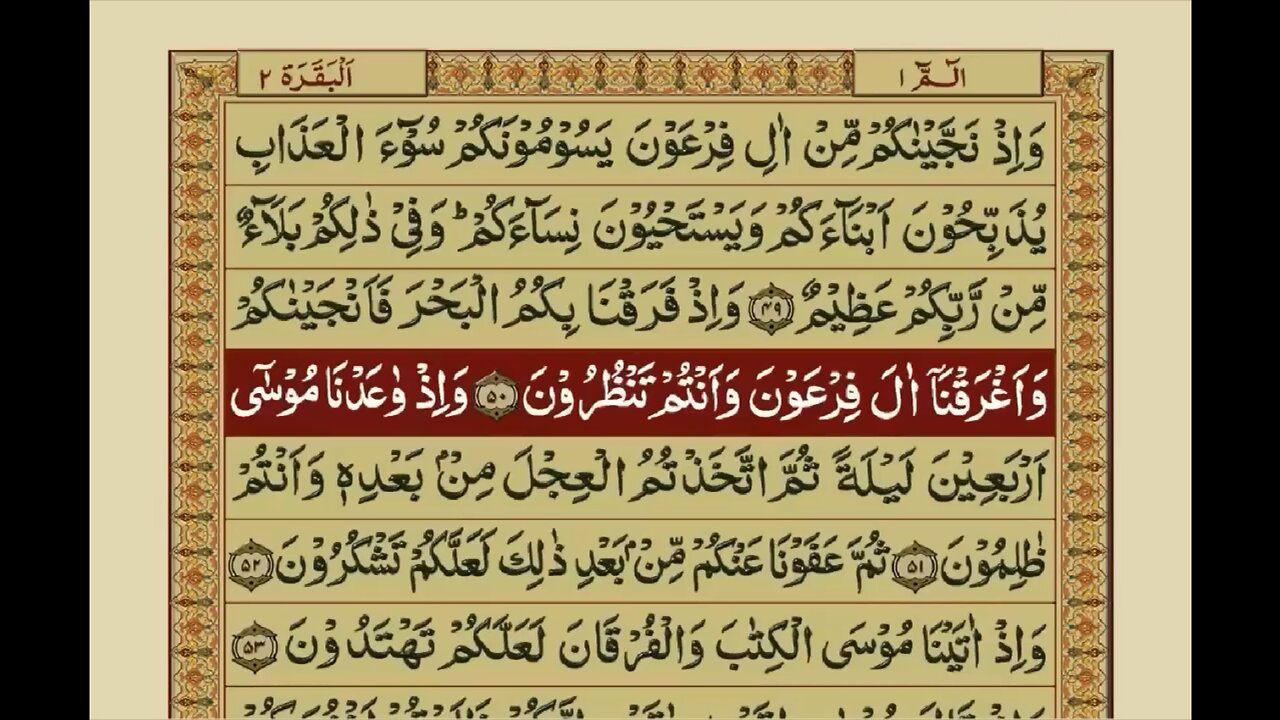 الٓمّٓ ١
اَلْبَقَرَة ٢
وَاِذْ نَجَّيْنٰكُمْ مِّنْ اٰلِ فِرْعَوْنَ يَسُوْمُوْنَكُمْ سُوْٓءَ الْعَذَابِ
يُذَبِّحُوْنَ اَبْنَآءَكُمْ وَيَسْتَحْيُوْنَ نِسَآءَكُمْ ؕ وَفِيْ ذٰلِكُمْ بَلَآءٌ
مِّنْ رَّبِّكُمْ عَظِيْمٌ ﴿۴۹﴾ وَاِذْ فَرَقْنَا بِكُمُ الْبَحْرَ فَاَنْجَيْنٰكُمْ
وَاَغْرَقْنَآ اٰلَ فِرْعَوْنَ وَاَنْتُمْ تَنْظُرُوْنَ ﴿۵۰﴾ وَاِذْ وٰعَدْنَا مُوْسٰٓى
اَرْبَعِيْنَ لَيْلَةً ثُمَّ اتَّخَذْتُمُ الْعِجْلَ مِنْۢ بَعْدِهٖ وَاَنْتُمْ
ظٰلِمُوْنَ ﴿۵۱﴾ ثُمَّ عَفَوْنَا عَنْكُمْ مِّنْۢ بَعْدِ ذٰلِكَ لَعَلَّكُمْ تَشْكُرُوْنَ ﴿۵۲﴾
وَاِذْ اٰتَيْنَا مُوْسَى الْكِتٰبَ وَالْفُرْقَانَ لَعَلَّكُمْ تَهْتَدُوْنَ ﴿۵۳﴾